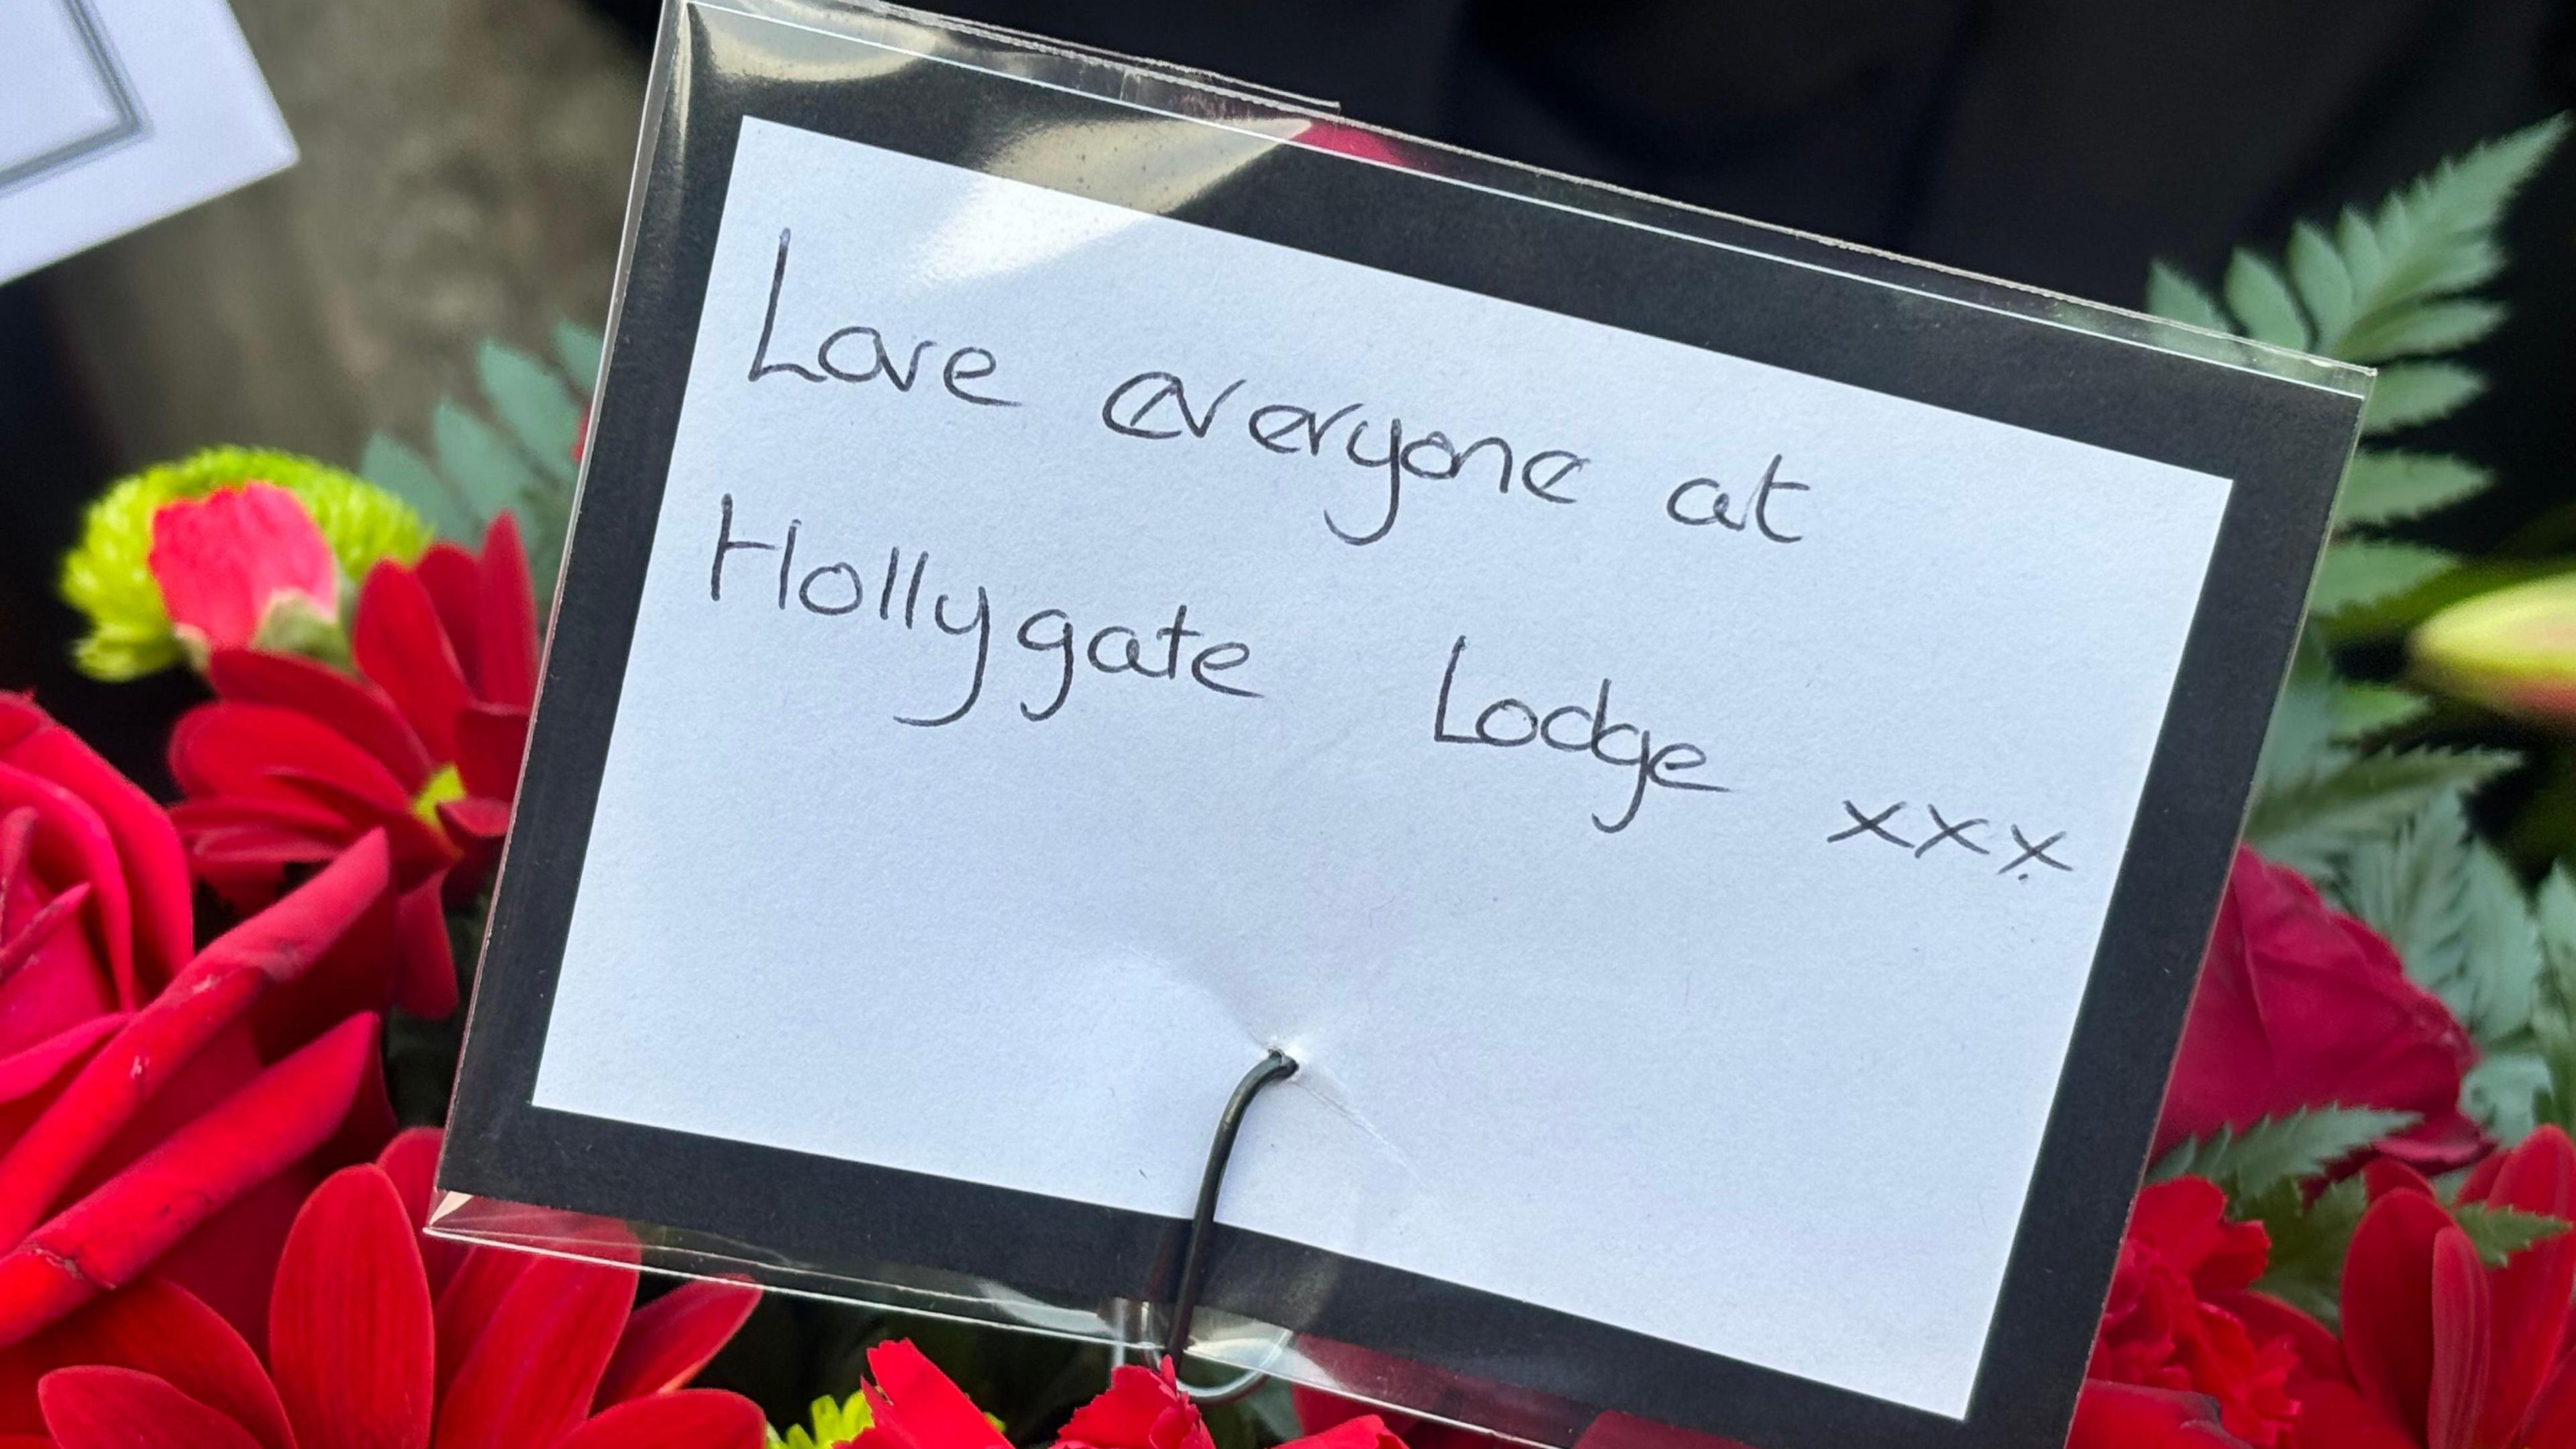 Love everyone at
Hollygate Lodge xxx